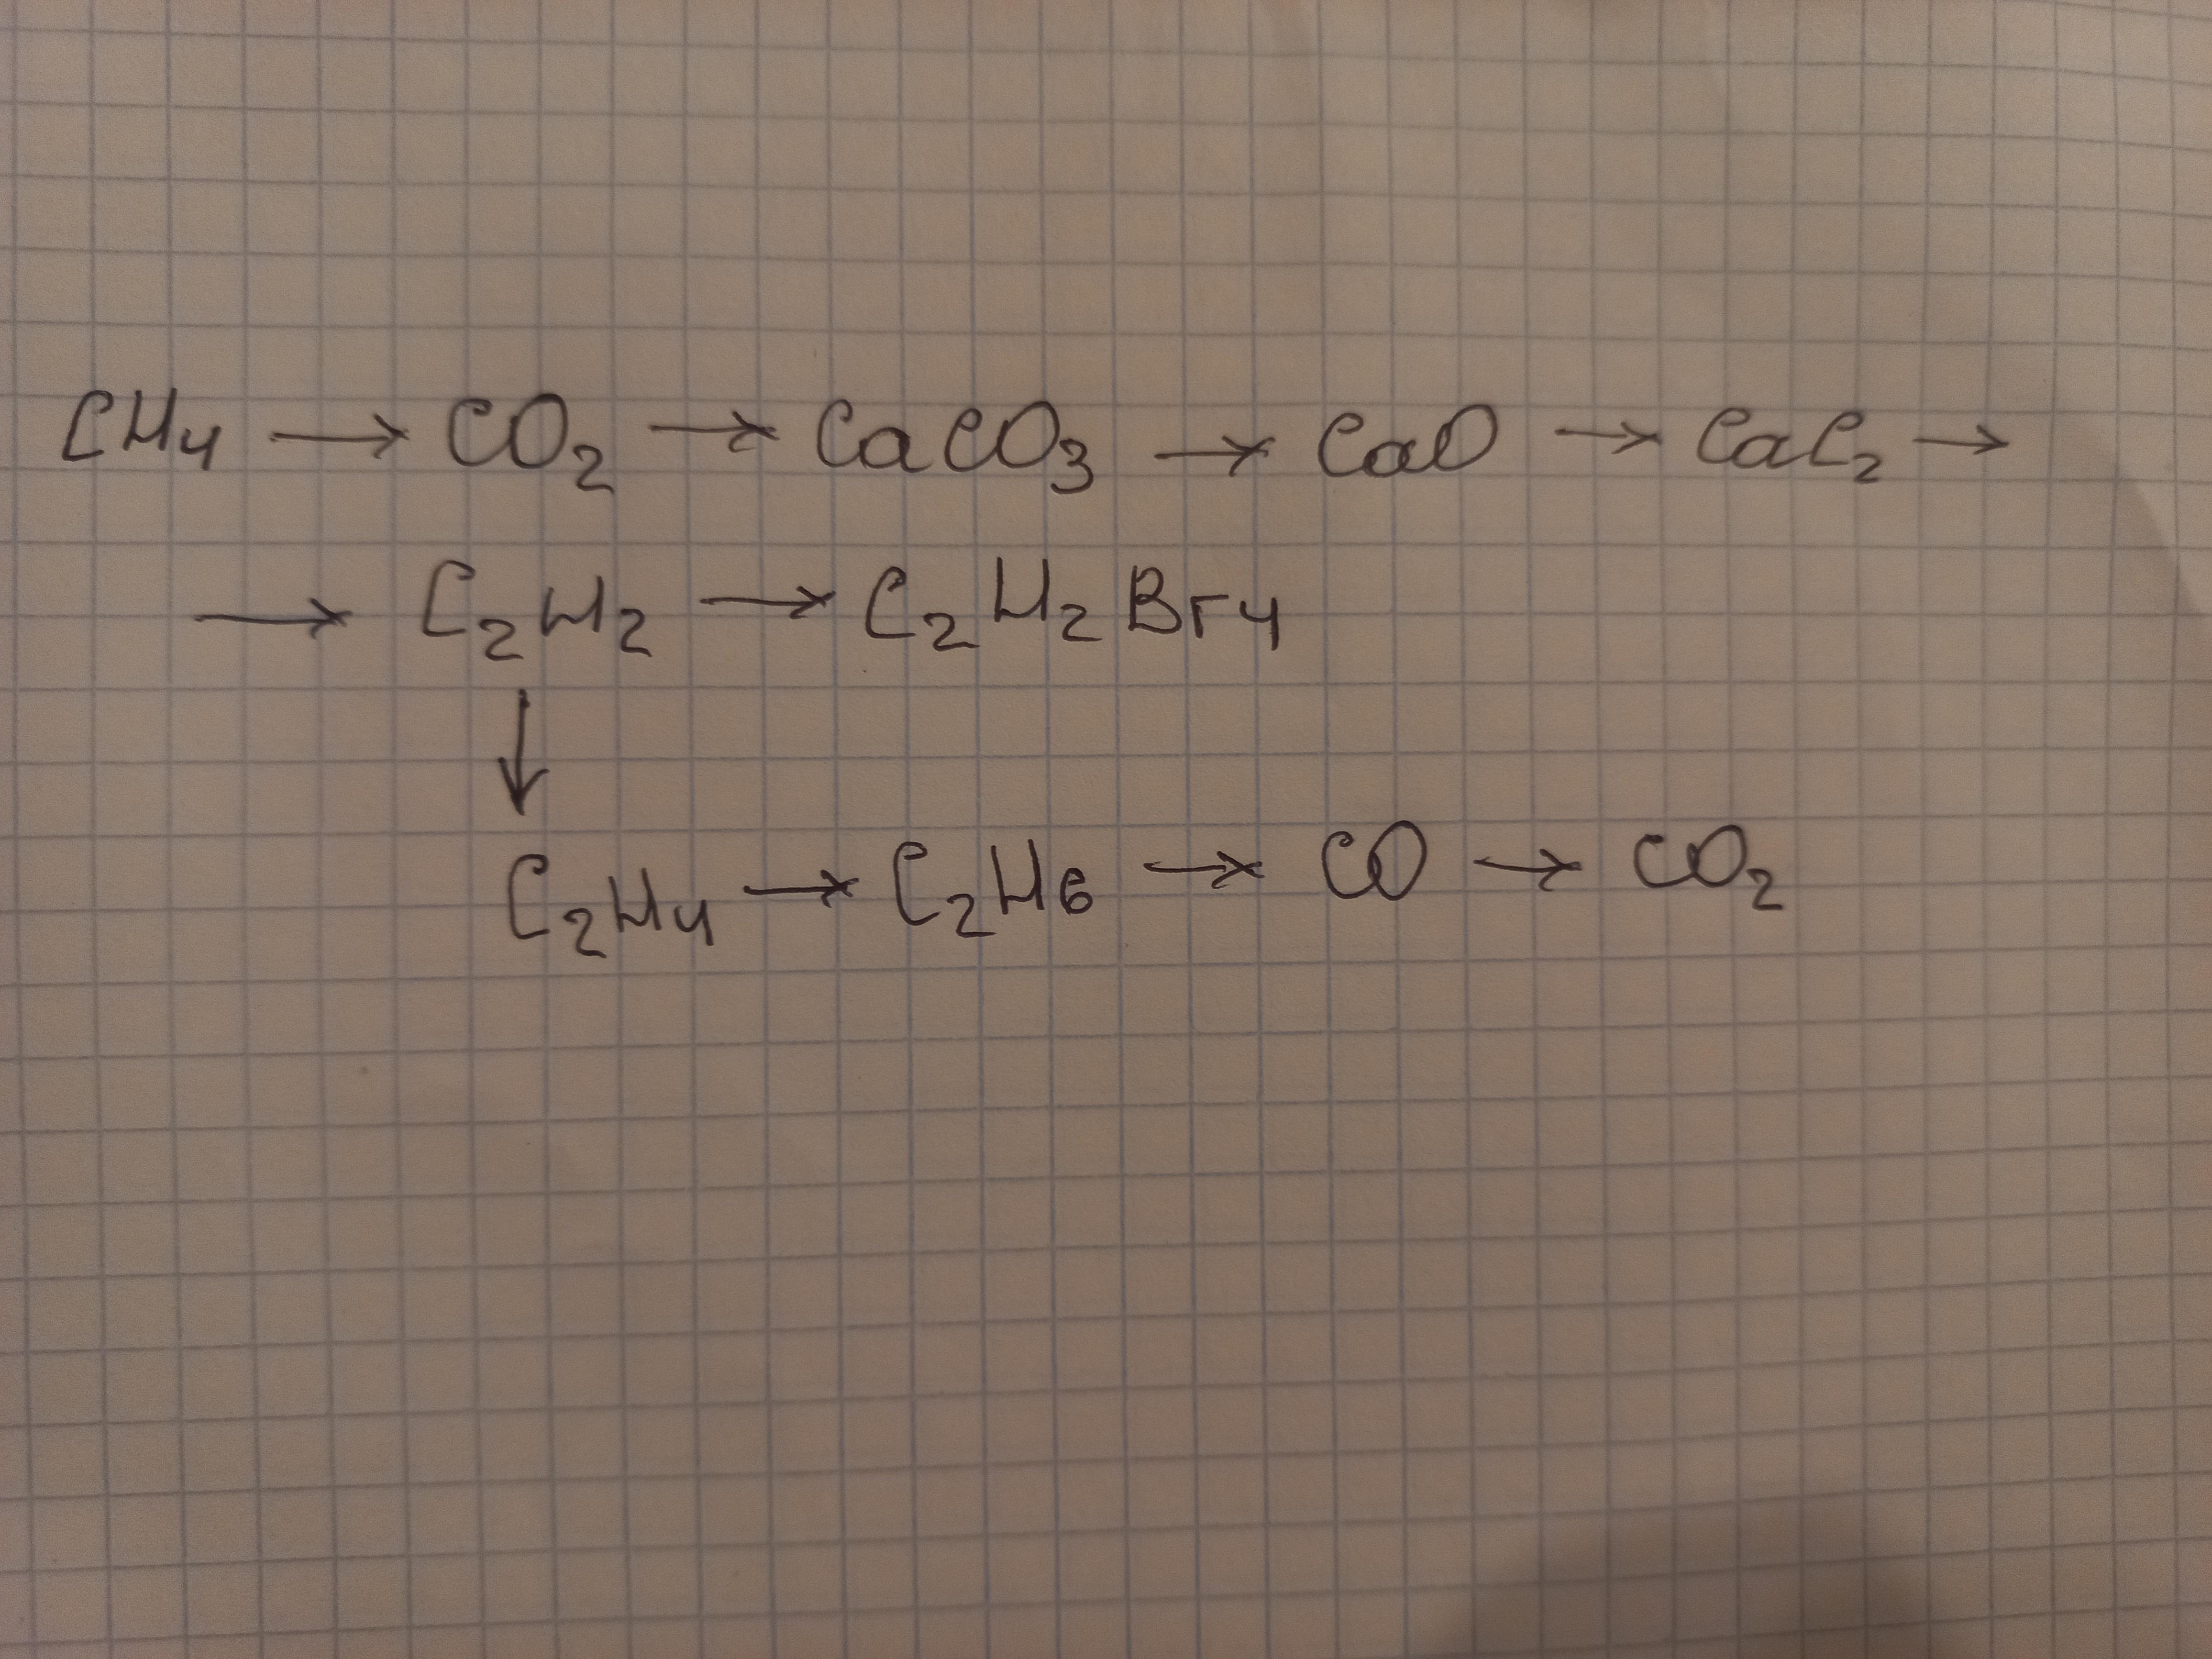 CH4 → CO2 → CaCO3 → CaO → CaC2 →
→ C2H2 → C2H2Br4
↓
C2H4 → C2H6 → CO → CO2